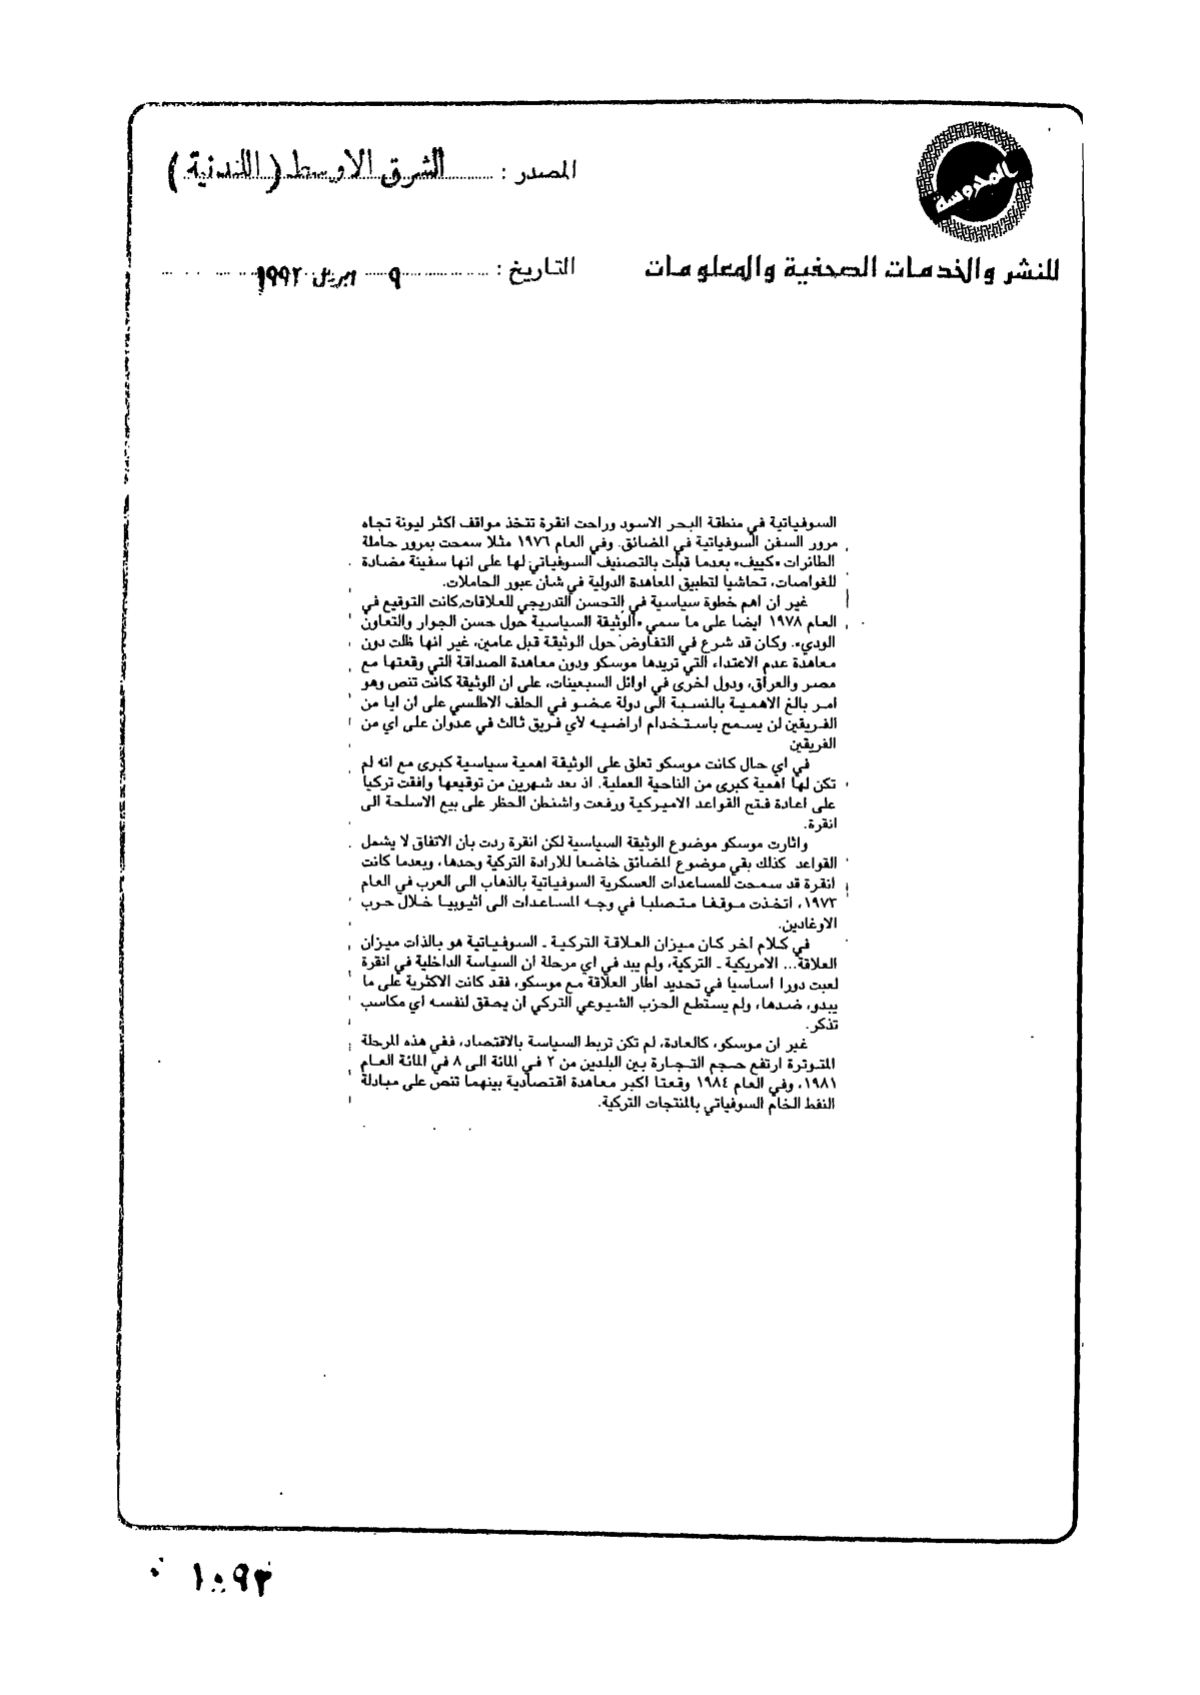 المحروسة
المصدر : الشرق الاوسط (اللندنية)
للنشر والخدمات الصحفية والمعلومات
التاريخ : ٩ ابريل ١٩٩٢
السوفياتية في منطقة البحر الاسود وراحت انقرة تتخذ مواقف اكثر ليونة تجاه
مرور السفن السوفياتية في المضائق. وفي العام ١٩٧٦ مثلا سمحت بمرور حاملة
الطائرات «كييف» بعدما قبلت بالتصنيف السوفياتي لها على انها سفينة مضادة
للغواصات، تحاشيا لتطبيق المعاهدة الدولية في شان عبور الحاملات.
غير ان اهم خطوة سياسية في التحسن التدريجي للعلاقات كانت التوقيع في
العام ١٩٧٨ ايضا على ما سمي «الوثيقة السياسية حول حسن الجوار والتعاون
الودي». وكان قد شرع في التفاوض حول الوثيقة قبل عامين، غير انها ظلت دون
معاهدة عدم الاعتداء التي تريدها موسكو ودون معاهدة الصداقة التي وقعتها مع
مصر والعراق، ودول اخرى في اوائل السبعينات، على ان الوثيقة كانت تنص وهو
امر بالغ الاهمية بالنسبة الى دولة عضو في الحلف الاطلسي على ان ايا من
الفريقين لن يسمح باستخدام اراضيه لأي فريق ثالث في عدوان على اي من
الفريقين
في اي حال كانت موسكو تعلق على الوثيقة اهمية سياسية كبرى مع انه لم
تكن لها اهمية كبرى من الناحية العملية. اذ بعد شهرين من توقيعها وافقت تركيا
على اعادة فتح القواعد الاميركية ورفعت واشنطن الحظر على بيع الاسلحة الى
انقرة.
واثارت موسكو موضوع الوثيقة السياسية لكن انقرة ردت بأن الاتفاق لا يشمل
القواعد كذلك بقي موضوع المضائق خاضعا للارادة التركية وحدها، وبعدما كانت
انقرة قد سمحت للمساعدات العسكرية السوفياتية بالذهاب الى العرب في العام
١٩٧٣، اتخذت موقفا متصلبا في وجه المساعدات الى اثيوبيا خلال حرب
الاوغادين.
في كلام اخر كان ميزان العلاقة التركية ـ السوفياتية هو بالذات ميزان
العلاقة... الامريكية ـ التركية، ولم يبد في اي مرحلة ان السياسة الداخلية في انقرة
لعبت دورا اساسيا في تحديد اطار العلاقة مع موسكو، فقد كانت الاكثرية على ما
يبدو، ضدها، ولم يستطع الحزب الشيوعي التركي ان يحقق لنفسه اي مكاسب
تذكر.
غير ان موسكو، كالعادة، لم تكن تربط السياسة بالاقتصاد، ففي هذه المرحلة
المتوترة ارتفع حجم التجارة بين البلدين من ٢ في المائة الى ٨ في المائة العام
١٩٨١، وفي العام ١٩٨٤ وقعتا اكبر معاهدة اقتصادية بينهما تنص على مبادلة
النفط الخام السوفياتي بالمنتجات التركية.
١٥٩٣